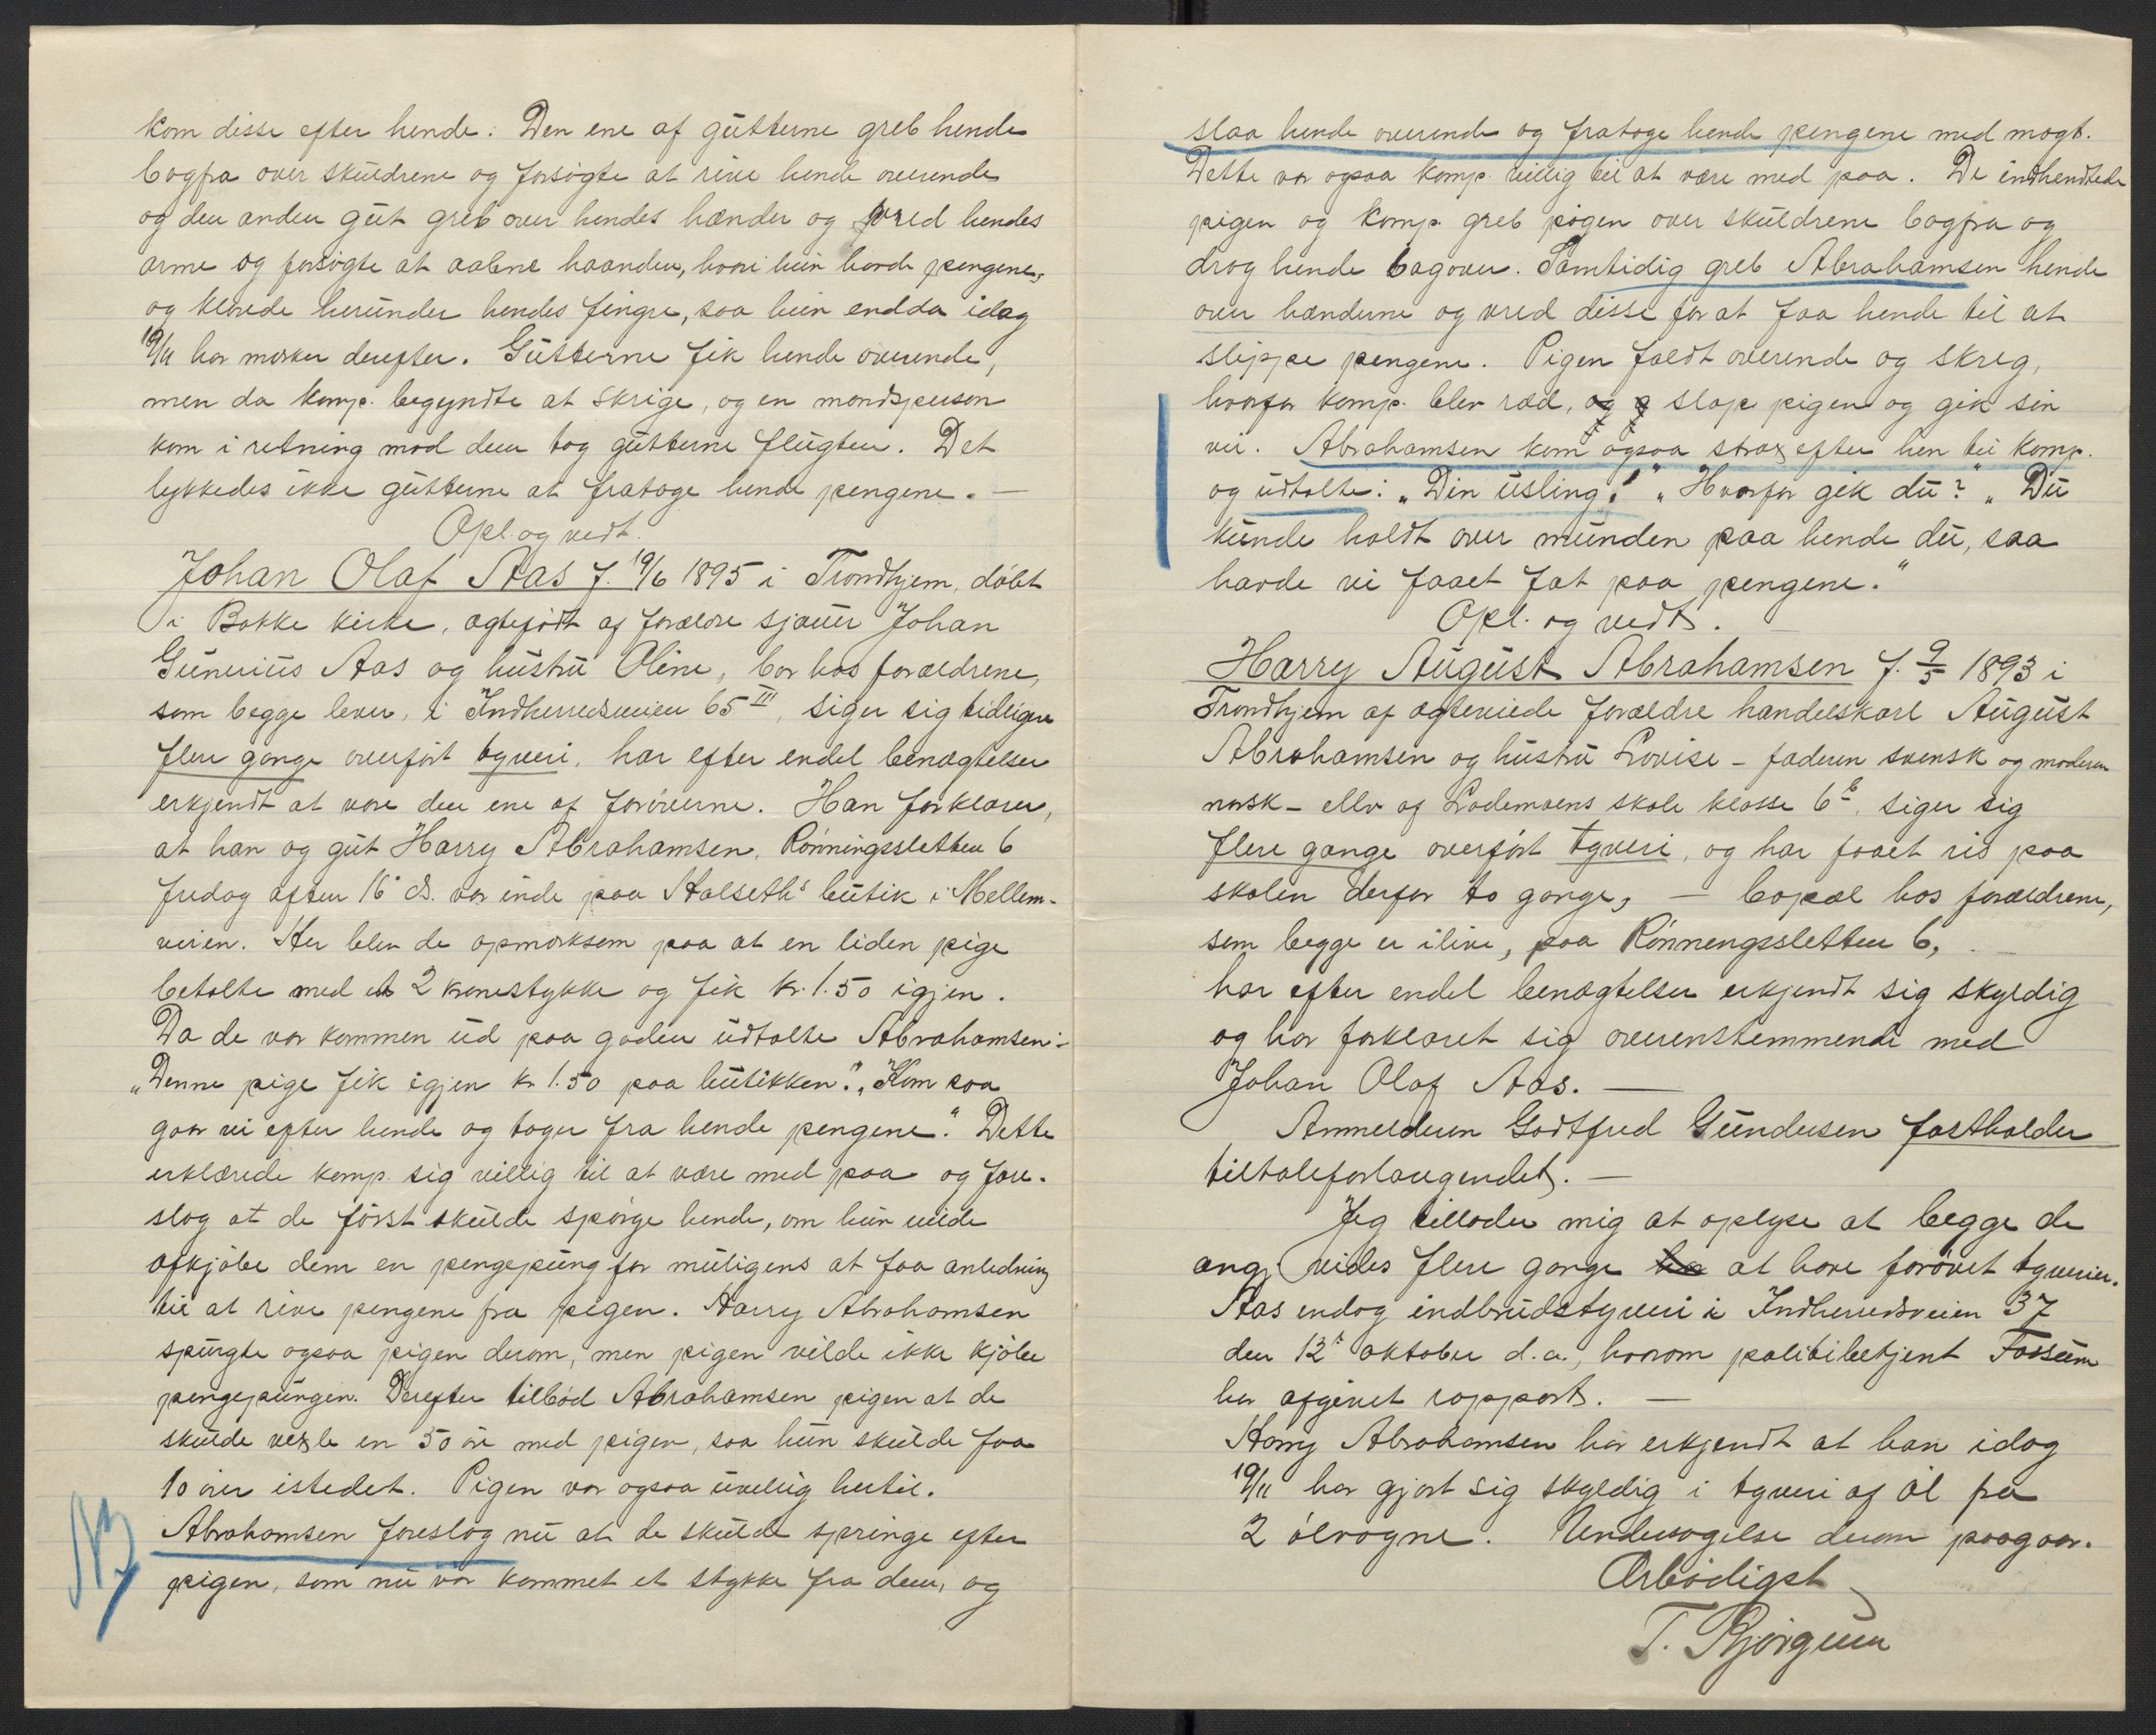 kom disse efter hende. Den ene af gutterne greb hende
bagfra over skuldrene og forsøgte at rive hende overende
og den anden gut greb over hendes hænder og vred hendes
arme og forsøgte at aabne haanden, hvori hun havde pengene,
og klorede herunder hendes fingre, saa hun endda idag
19/11 har mærker derefter. Gutterne fik hende overende,
men da komp. begyndte at skrige, og en mandsperson
kom i retning mod dem tog gutterne flugten. Det
lykkedes ikke gutterne at fratage hende pengene. —
Opl. og vedt.
Johan Olaf Aas f. 19/6 1895 i Trondhjem, døbt
i Bakke kirke, ægtefødt af forældre sjauer Johan
Gunerius Aas og hustru Oline, bor hos forældrene,
som begge lever, i Indherredsveien 65 III, siger sig tidligere
flere gange overført tyveri, har efter endel benægtelser
erkjendt at være den ene af forøverne. Han forklarer,
at han og gut Harry Abrahamsen, Rønningsletten 6
fredag aften 16' ds. var inde paa Halseth's butik i Mellem-
veien. Her blev de opmerksom paa at en liden pige
betalte med et 2 kronestykke og fik kr. 1.50 igjen.
Da de var kommen ud paa gaden udtalte Abrahamsen:-
„Denne pige fik igjen kr 1.50 paa butikken." „Kom saa
gaar vi efter hende og tager fra hende pengene." Dette
erklærede komp. sig villig til at være med paa og fore-
slog at de først skulde spørge hende, om hun vilde
afkjøbe dem en pengepung for muligens at faa anledning
til at rive pengene fra pigen. Harry Abrahamsen
spurgte ogsaa pigen derom, men pigen vilde ikke kjøbe
pengepungen. Derefter tilbød Abrahamsen pigen at de
skulde vexle en 50 øre med pigen, saa hun skulde faa
10 ører istedet. Pigen var ogsaa uvillig hertil.
Abrahamsen foreslog nu at de skulde springe efter
pigen, som nu var kommet et stykke fra dem, og
slaa hende overende og fratage hende pengene med magt.
Dette var ogsaa komp. villig til at være med paa. De indhendtede
pigen og komp. greb pigen over skuldrene bagfra og
drog hende bagover. Samtidig greb Abrahamsen hende
over hænderne og vred disse for at faa hende til at
slippe pengene. Pigen faldt overende og skreg,
hvorfor komp. blev ræd, og slap pigen og gik sin
vei. Abrahamsen kom ogsaa strax efter hen til komp.
og udtalte: „Din usling!" „Hvorfor gik du?" „Du
kunde holdt over munden paa hende du, saa
havde vi faaet fat paa pengene."
Opl. og vedt. —
Harry August Abrahamsen f. 9/5 1893 i
Trondhjem af ægteviede forældre handelskarl August
Abrahamsen og hustru Lovise - faderen svensk og moderen
norsk - elev af Lademoens skole klasse 6 b, siger sig
flere gange overført tyveri, og har faaet ris paa
skolen derfor to gange, — bopæl hos forældrene,
som begge er ilive, paa Rønningsletten 6,
har efter endel benægtelser erkjendt sig skyldig
og har forklaret sig overenstemmende med
Johan Olaf Aas. —
Anmelderen Godtfred Gundersen fastholder
tiltaleforlangendet. —
Jeg tillader mig at oplyse at begge de
ang. vides flere gange at have forøvet tyverier.
Aas endog indbrudstyveri i Indherredsveien 37
den 12' oktober d.a., hvorom politibetjent Fossum
har afgivet rapport. —
Harry Abrahamsen har erkjendt at han idag
19/11 har gjort sig skyldig i tyveri af øl fra
2 ølvogne. Undersøgelse derom paagaar.
Ærbødigst
T. Bjørgum
NB